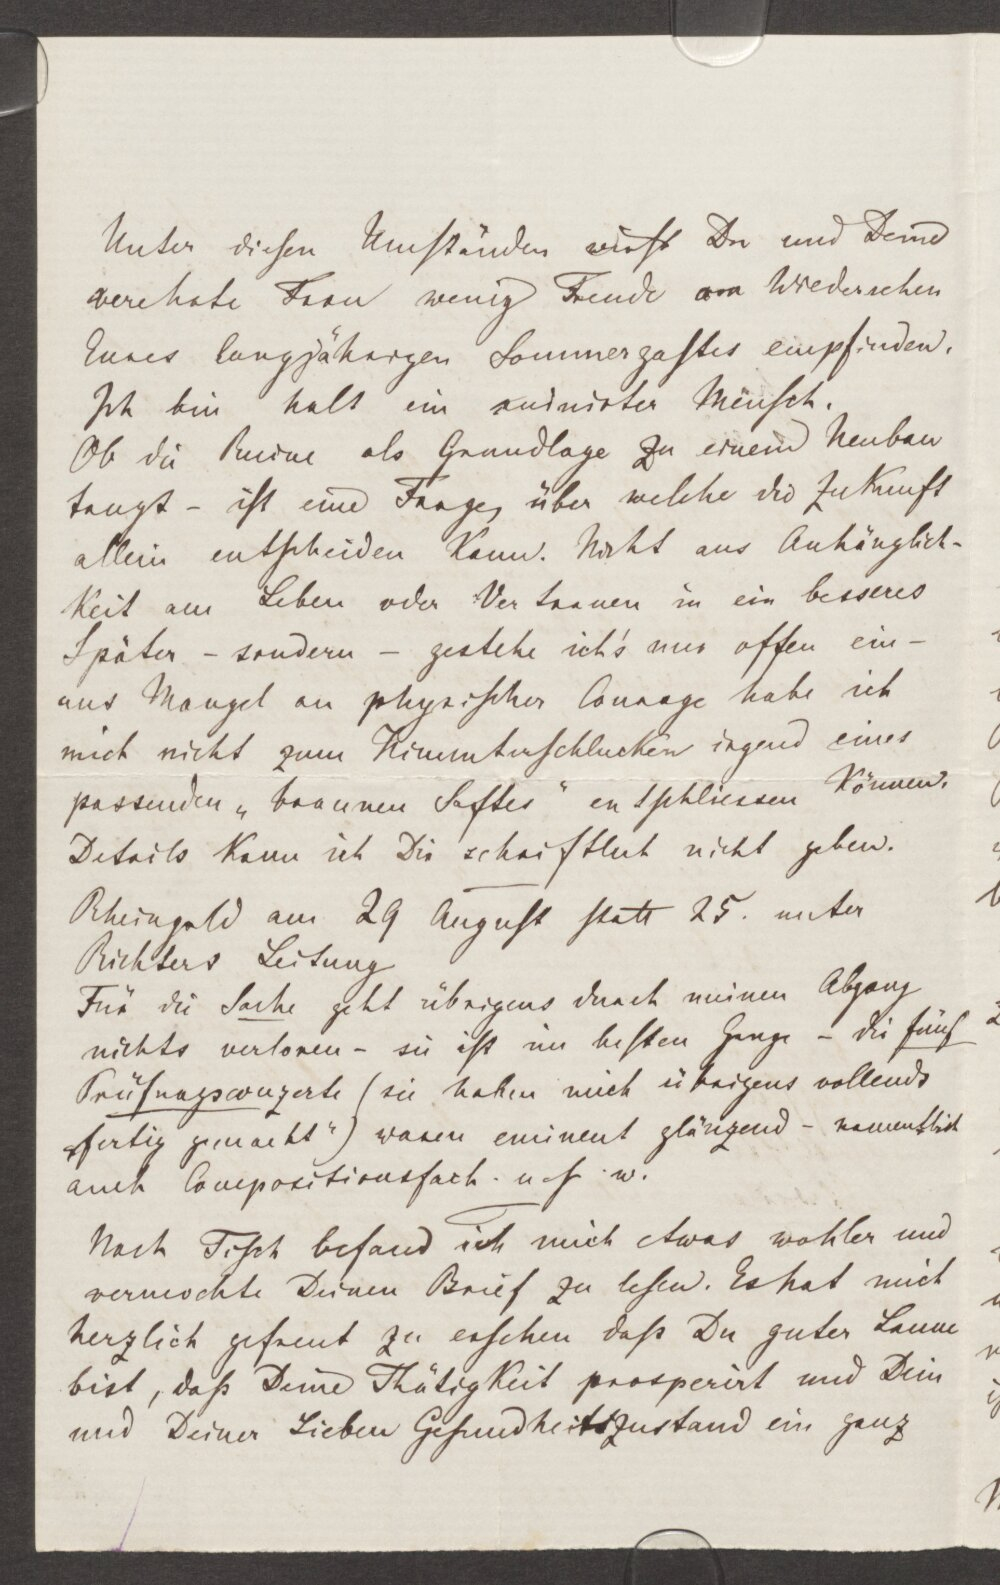 Unter diesen Umständen wirst Du und Deine
verehrte Frau wenig Freude am Wiedersehen
Eures langjährigen Sommergastes empfinden.
Ich bin halt ein ruinirter Mensch.
Ob die Ruine als Grundlage zu einem Neubau
taugt – ist eine Frage, über welche die Zukunft
allein entscheiden kann. Nicht aus Anhänglich-
keit am Leben oder Vertrauen in ein besseres
Später – sondern – gestehe ich's nur offen ein –
aus Mangel an physischer Courage habe ich
mich nicht zum Hinunterschlucken irgend eines
passenden „braunen Saftes" entschliessen können.
Details kann ich Dir schriftlich nicht geben.
Rheingold am 29 August statt 25. unter
Richters Leitung
Für die Sache geht übrigens durch meinen Abgang
nichts verloren – sie ist im besten Gange – die fünf
Prüfungsconzerte (sie haben mich übrigens vollends
„fertig gemacht") waren eminent glänzend – namentlich
auch Compositionsfach u. s. w.
Nach Tisch befand ich mich etwas wohler und
vermochte Deinen Brief zu lesen. Es hat mich
herzlich gefreut zu ersehen daß Du guter Laune
bist, daß Deine Thätigkeit prosperirt und Dein
und Deiner Lieben Gesundheitszustand ein ganz